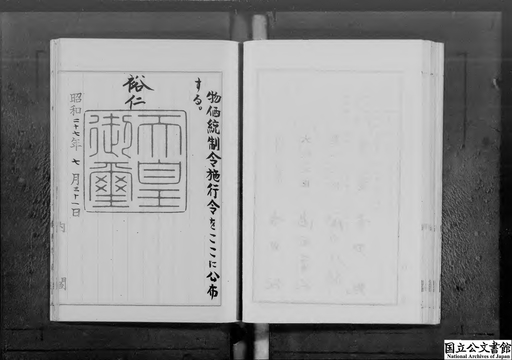 物価統制令施行令をここに公布
する。
裕仁
天皇
御璽
昭和二十七年七月三十一日
内閣
国立公文書館
National Archives of Japan